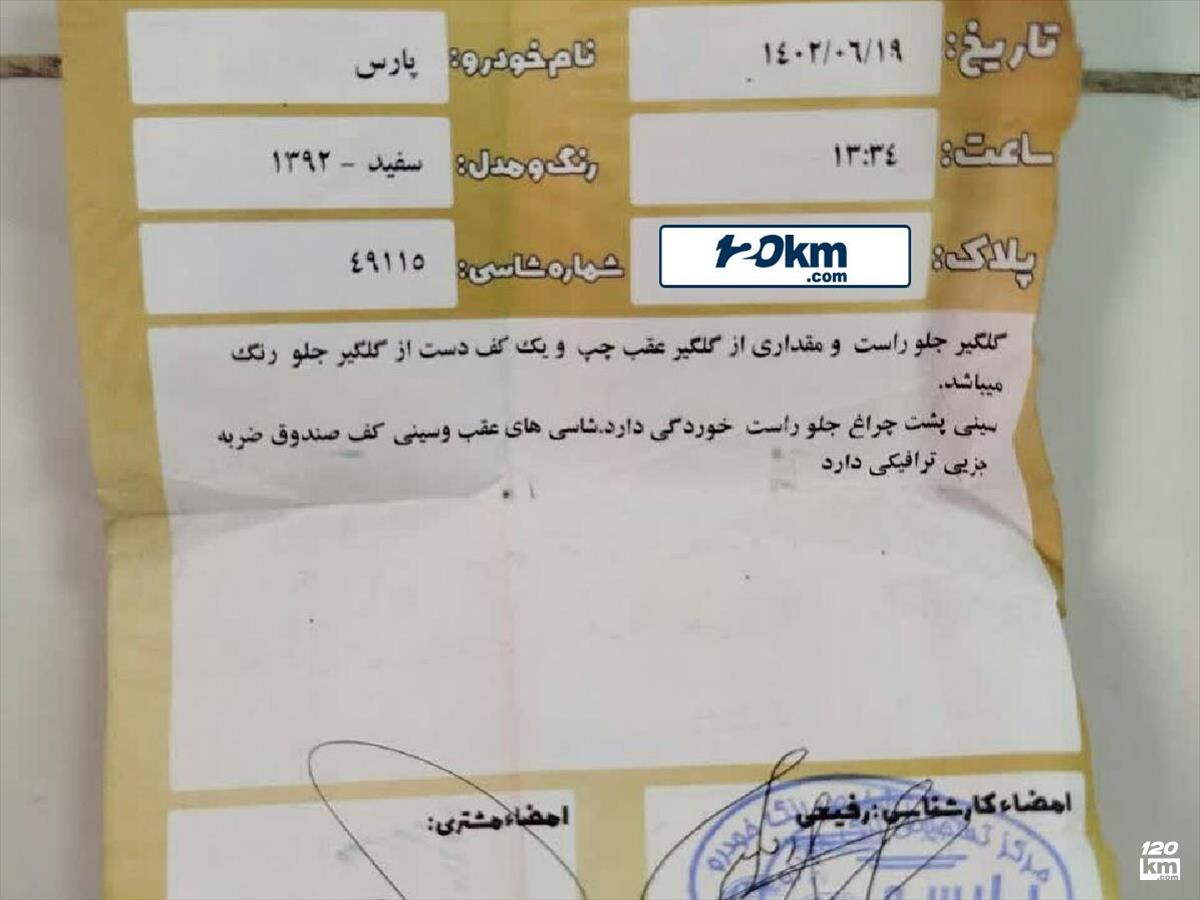 تاریخ: ۱٤۰۲/۰٦/۱۹
نام خودرو: پارس
ساعت: ۱۳:۳٤
رنگ و مدل: سفید - ۱۳۹۲
پلاک: 120km.com
شماره شاسی: ٤۹۱۱٥
گلگیر جلو راست و مقداری از گلگیر عقب چپ و یک کف دست از گلگیر جلو رنگ
میباشد.
سینی پشت چراغ جلو راست خوردگی دارد.شاسی های عقب وسینی کف صندوق ضربه
جزیی ترافیکی دارد
امضاء کارشناسی: رفیعی
امضاء مشتری:
مرکز خودرو
120km.com